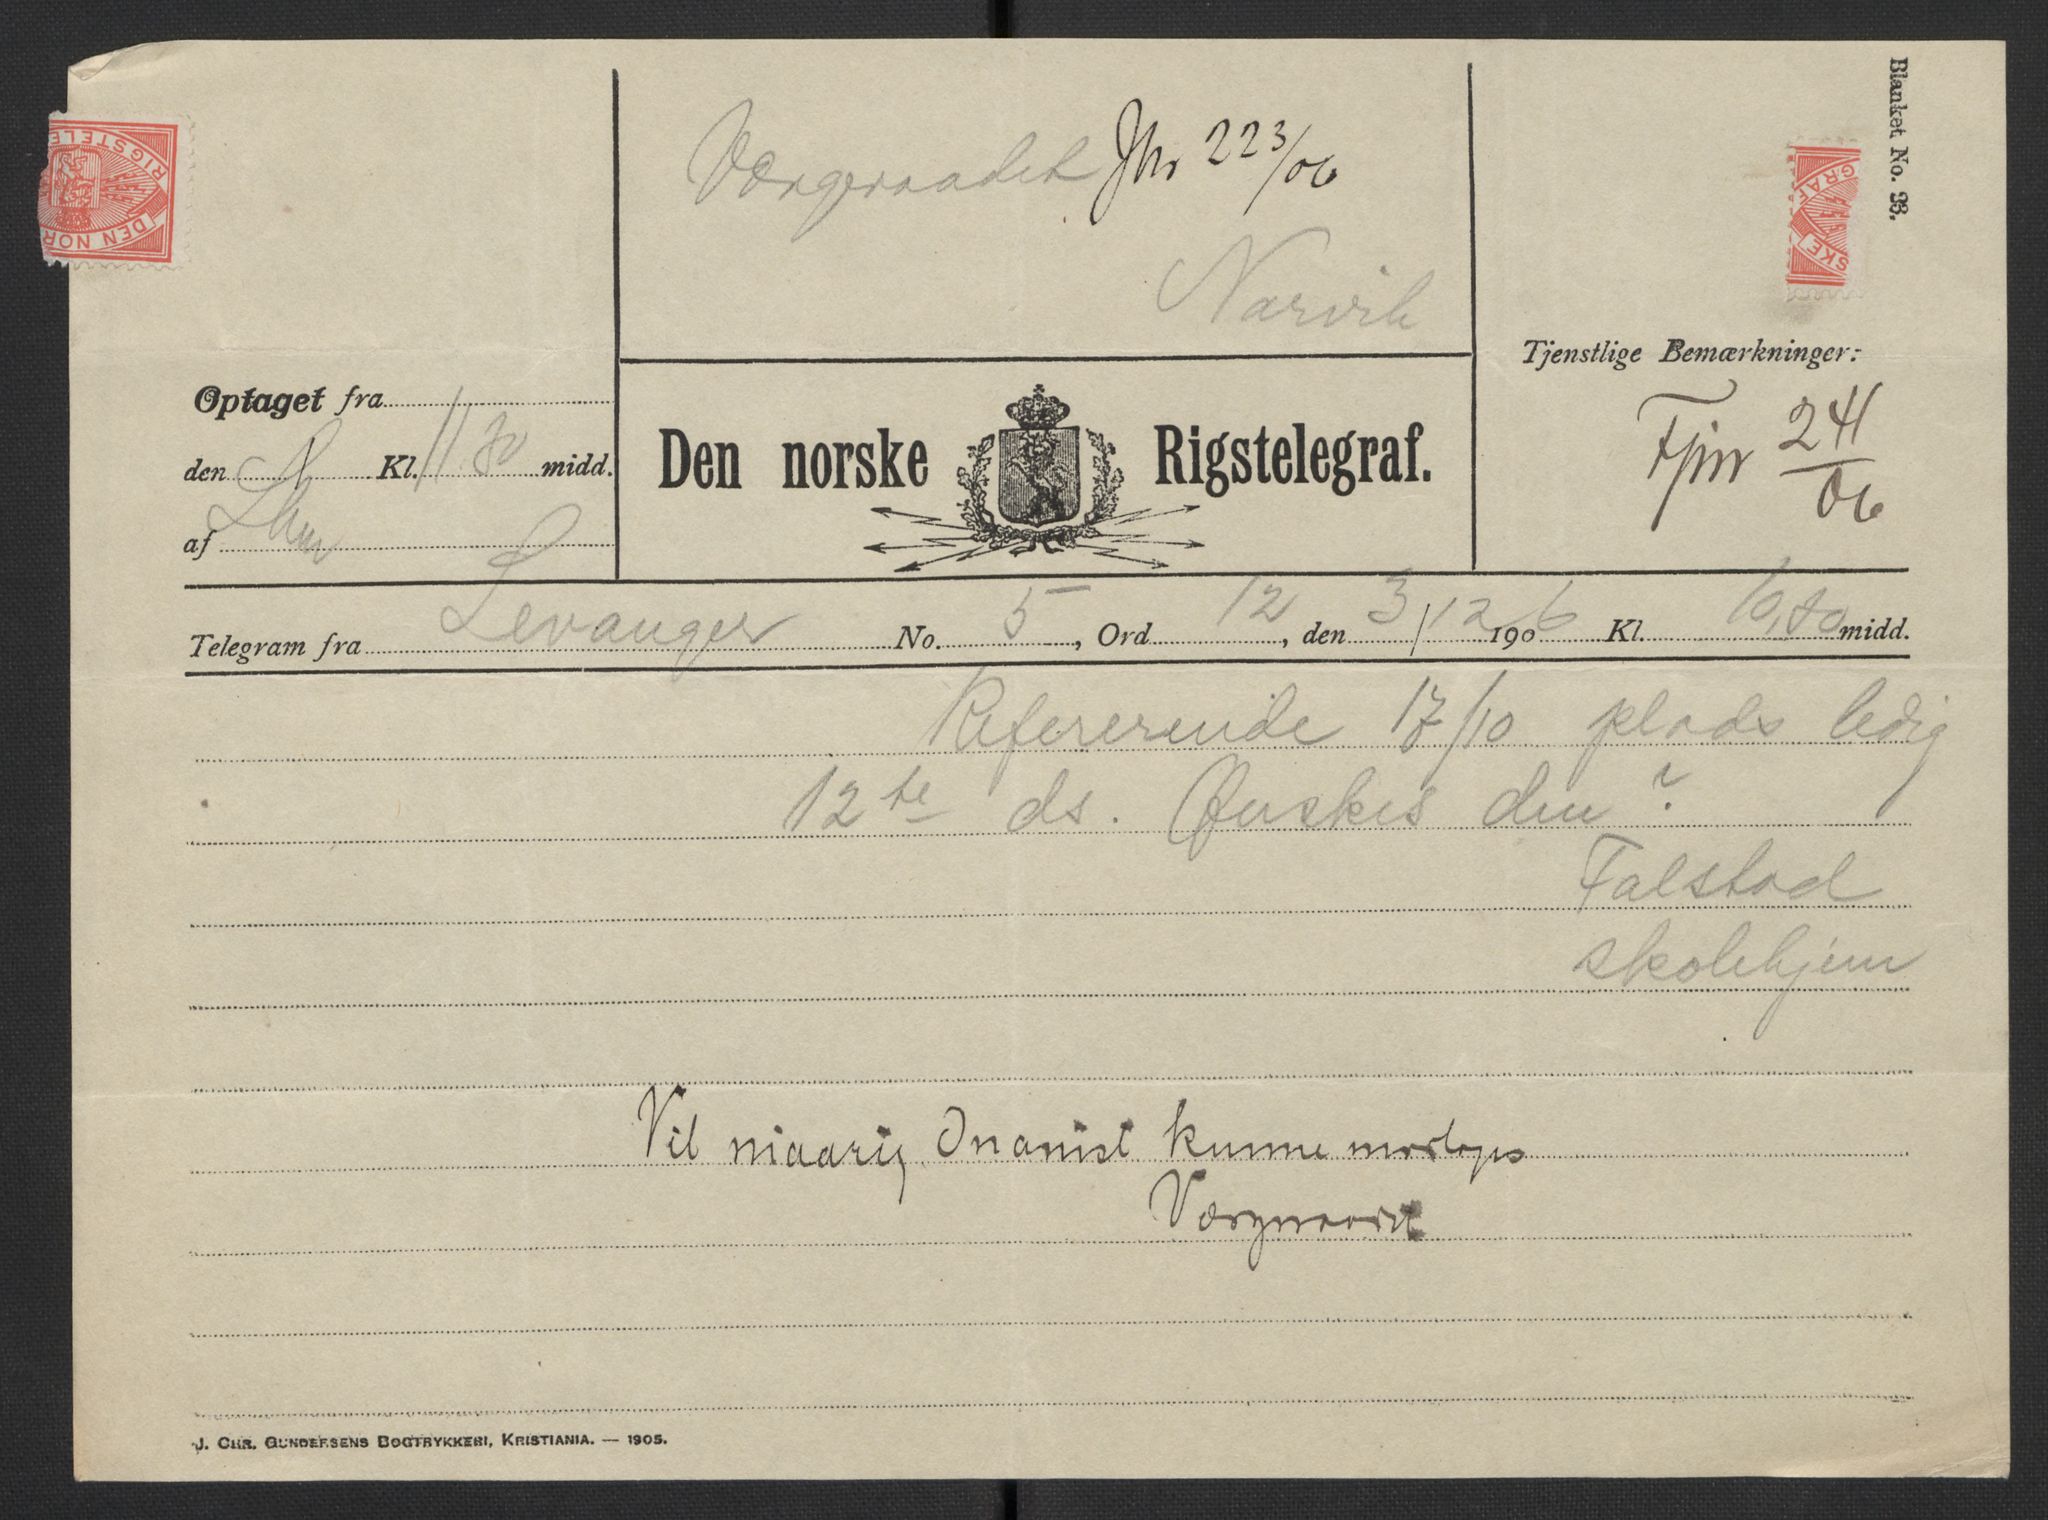 Blanket No. 23.
RIGSTELE
DEN NOR
GRAF
SKE
Værgeraadet Jnr 223/06
Narvik
Optaget fra
den Kl. 11.30 midd.
af
Den norske Rigstelegraf.
Tjenstlige Bemærkninger:
Fjnr 241/06
Telegram fra Levanger No. 5, Ord 12, den 3/12 1906 Kl. 10,80 midd.
Refererende 17/10 plads ledig
12te ds. Ønskes den?
Falstad
skolehjem
Vil niaarig Onanist kunne mottages
Værgeraadet
J. CHR. GUNDERSENS BOGTRYKKERI, KRISTIANIA. — 1905.